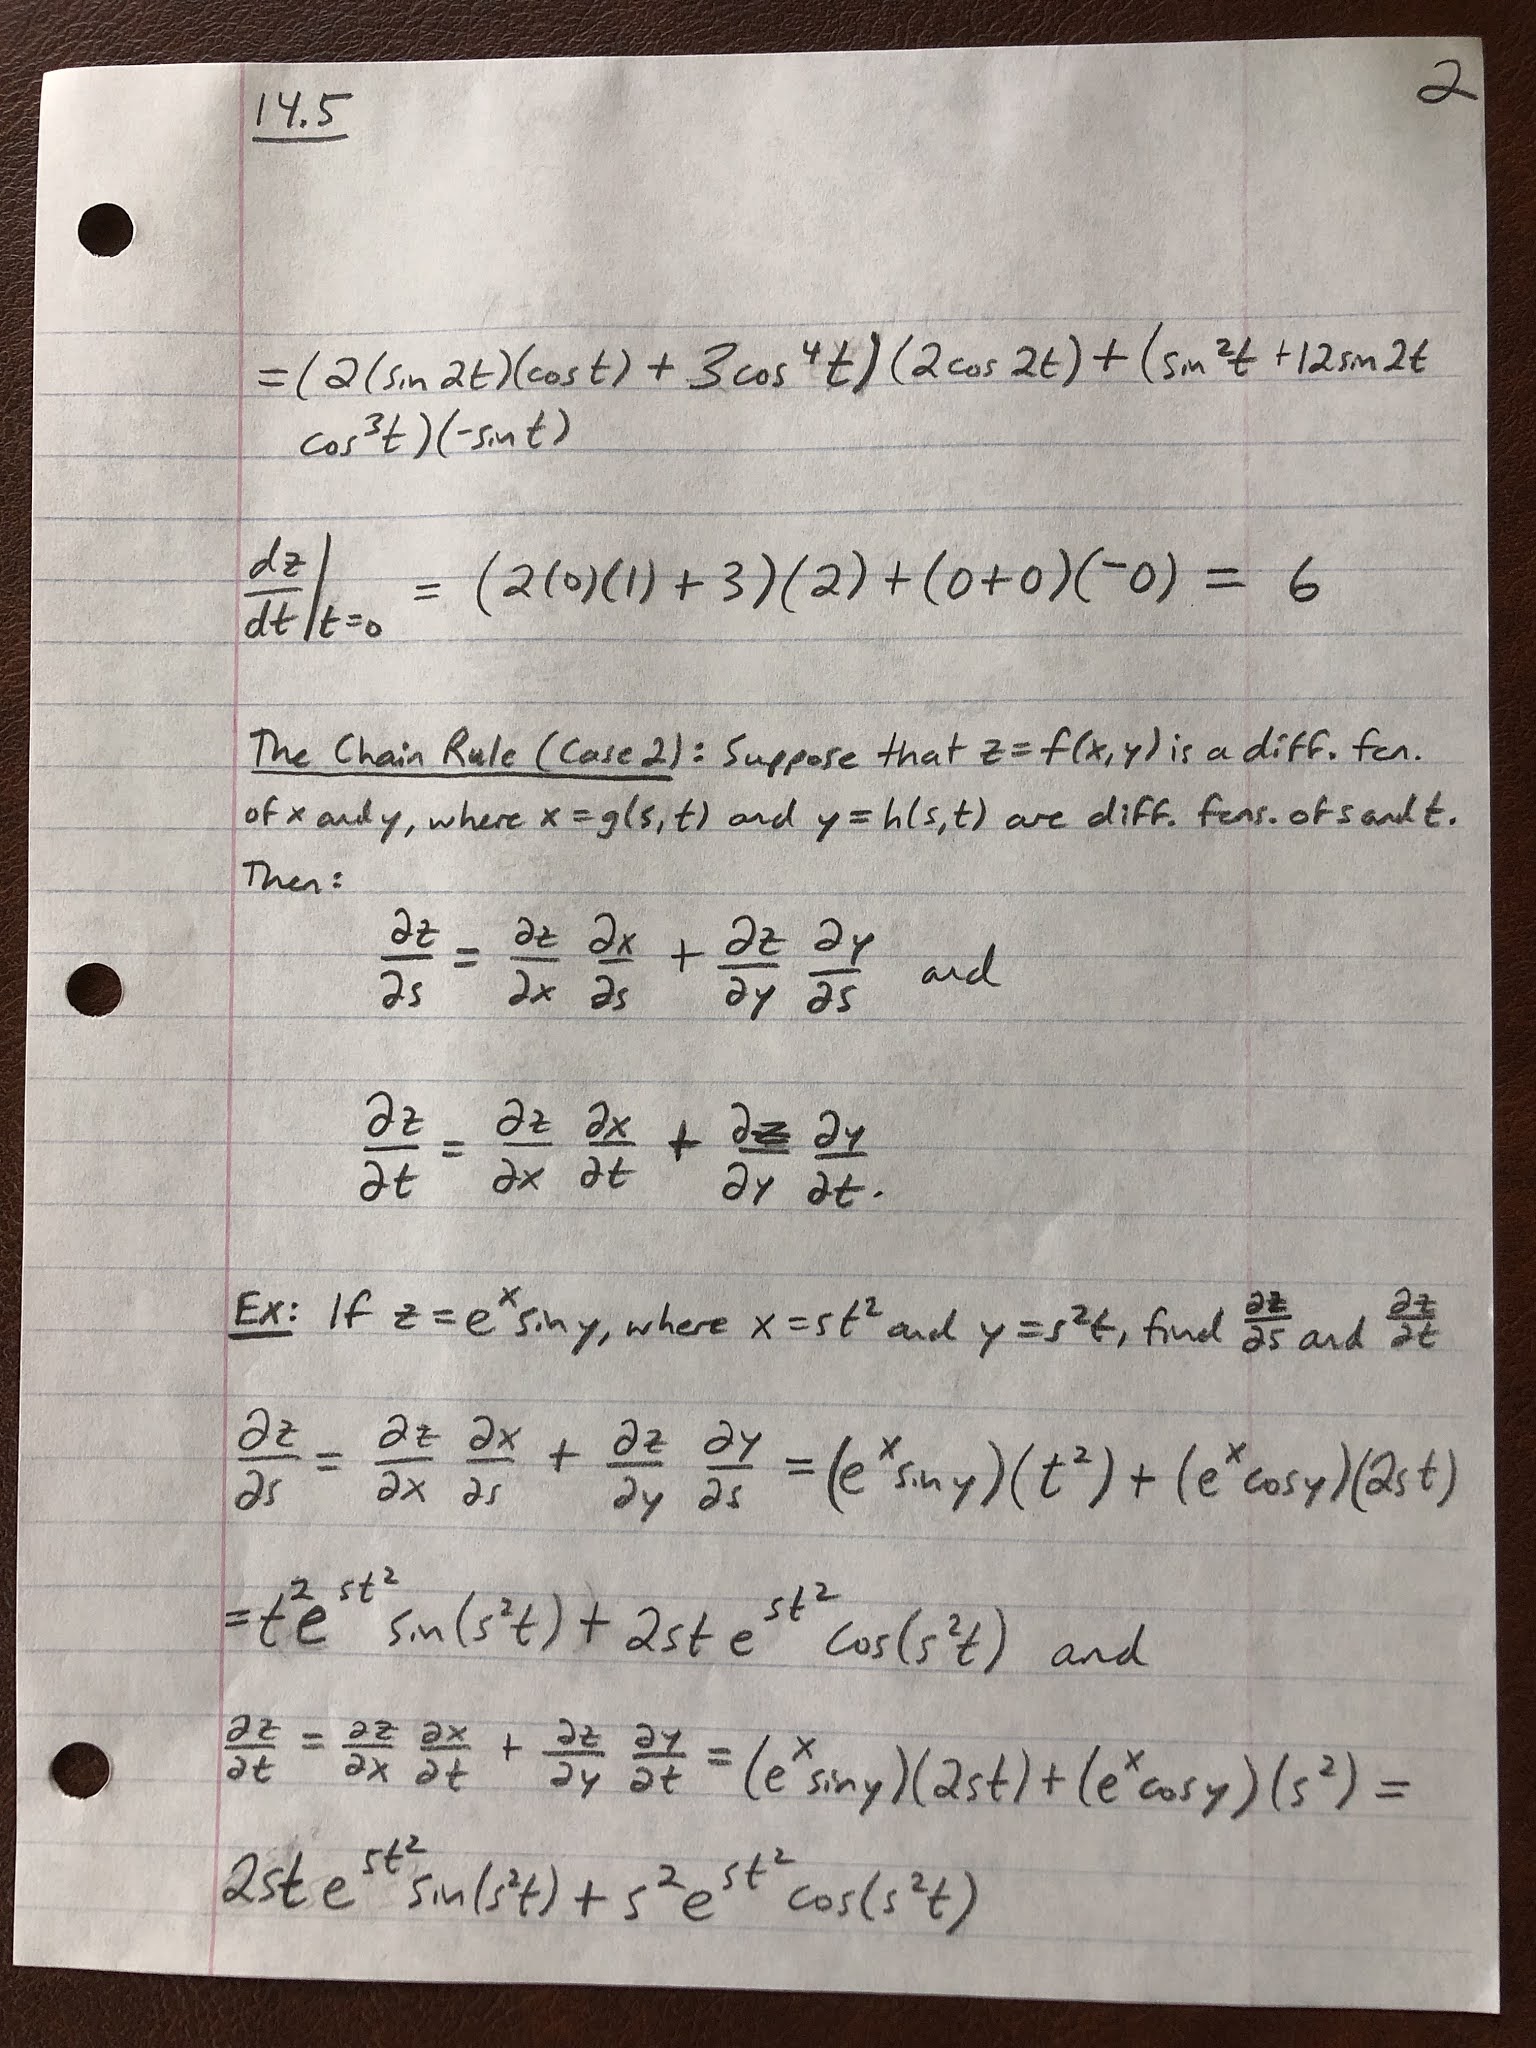 14.5
2
=(2(sin 2t)(cos t) + 3cos⁴t)(2cos 2t) + (sin²t + 12sin 2t
cos³t)(-sin t)
dz/dt|t=0 = (2(0)(1) + 3)(2) + (0+0)(-0) = 6
The Chain Rule (Case 2): Suppose that z=f(x,y) is a diff. fcn.
of x and y, where x=g(s,t) and y=h(s,t) are diff. fcns. of s and t.
Then:
∂z/∂s = ∂z/∂x ∂x/∂s + ∂z/∂y ∂y/∂s and
∂z/∂t = ∂z/∂x ∂x/∂t + ∂z/∂y ∂y/∂t.
Ex: If z=eˣsiny, where x=st² and y=s²t, find ∂z/∂s and ∂z/∂t
∂z/∂s = ∂z/∂x ∂x/∂s + ∂z/∂y ∂y/∂s = (eˣsiny)(t²) + (eˣcosy)(2st)
=t²e^{st²} sin(s²t) + 2st e^{st²} cos(s²t) and
∂z/∂t = ∂z/∂x ∂x/∂t + ∂z/∂y ∂y/∂t = (eˣsiny)(2st) + (eˣcosy)(s²) =
2st e^{st²} sin(s²t) + s²e^{st²} cos(s²t)